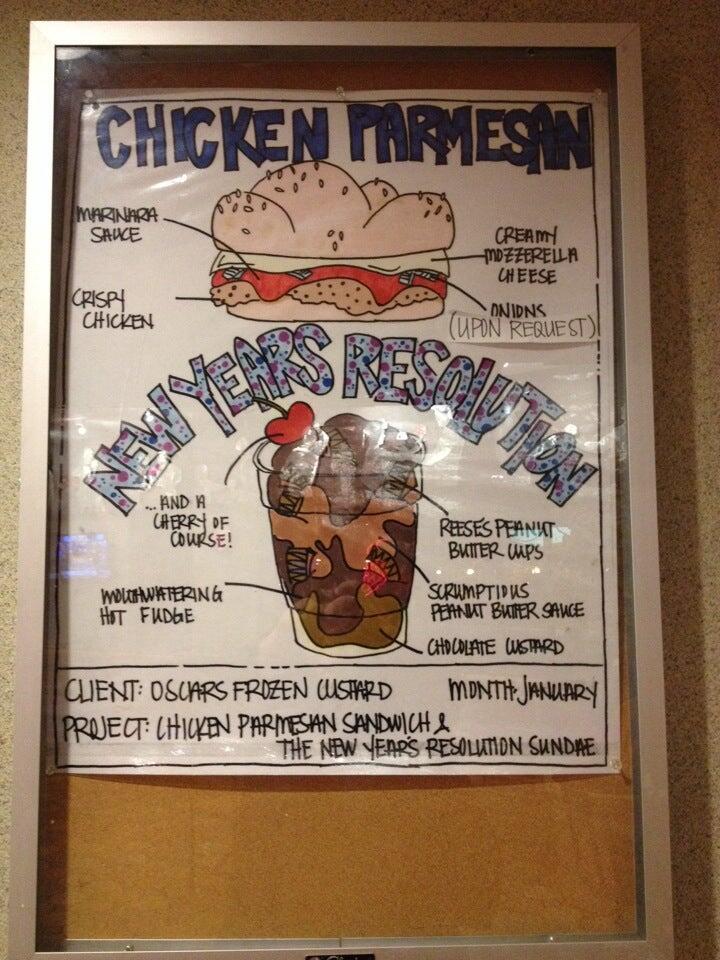 CHICKEN PARMESAN
MARINARA
SAUCE
CREAMY
MOZZERELLA
CHEESE
CRISPY
CHICKEN
ONIONS
(UPON REQUEST)
NEW YEARS RESOLUTION
...AND A
CHERRY OF
COURSE!
REESE'S PEANUT
BUTTER CUPS
MOUTHWATERING
HOT FUDGE
SCRUMPTIOUS
PEANUT BUTTER SAUCE
CHOCOLATE CUSTARD
CLIENT: OSCARS FROZEN CUSTARD MONTH: JANUARY
PROJECT: CHICKEN PARMESAN SANDWICH &
THE NEW YEAR'S RESOLUTION SUNDAE